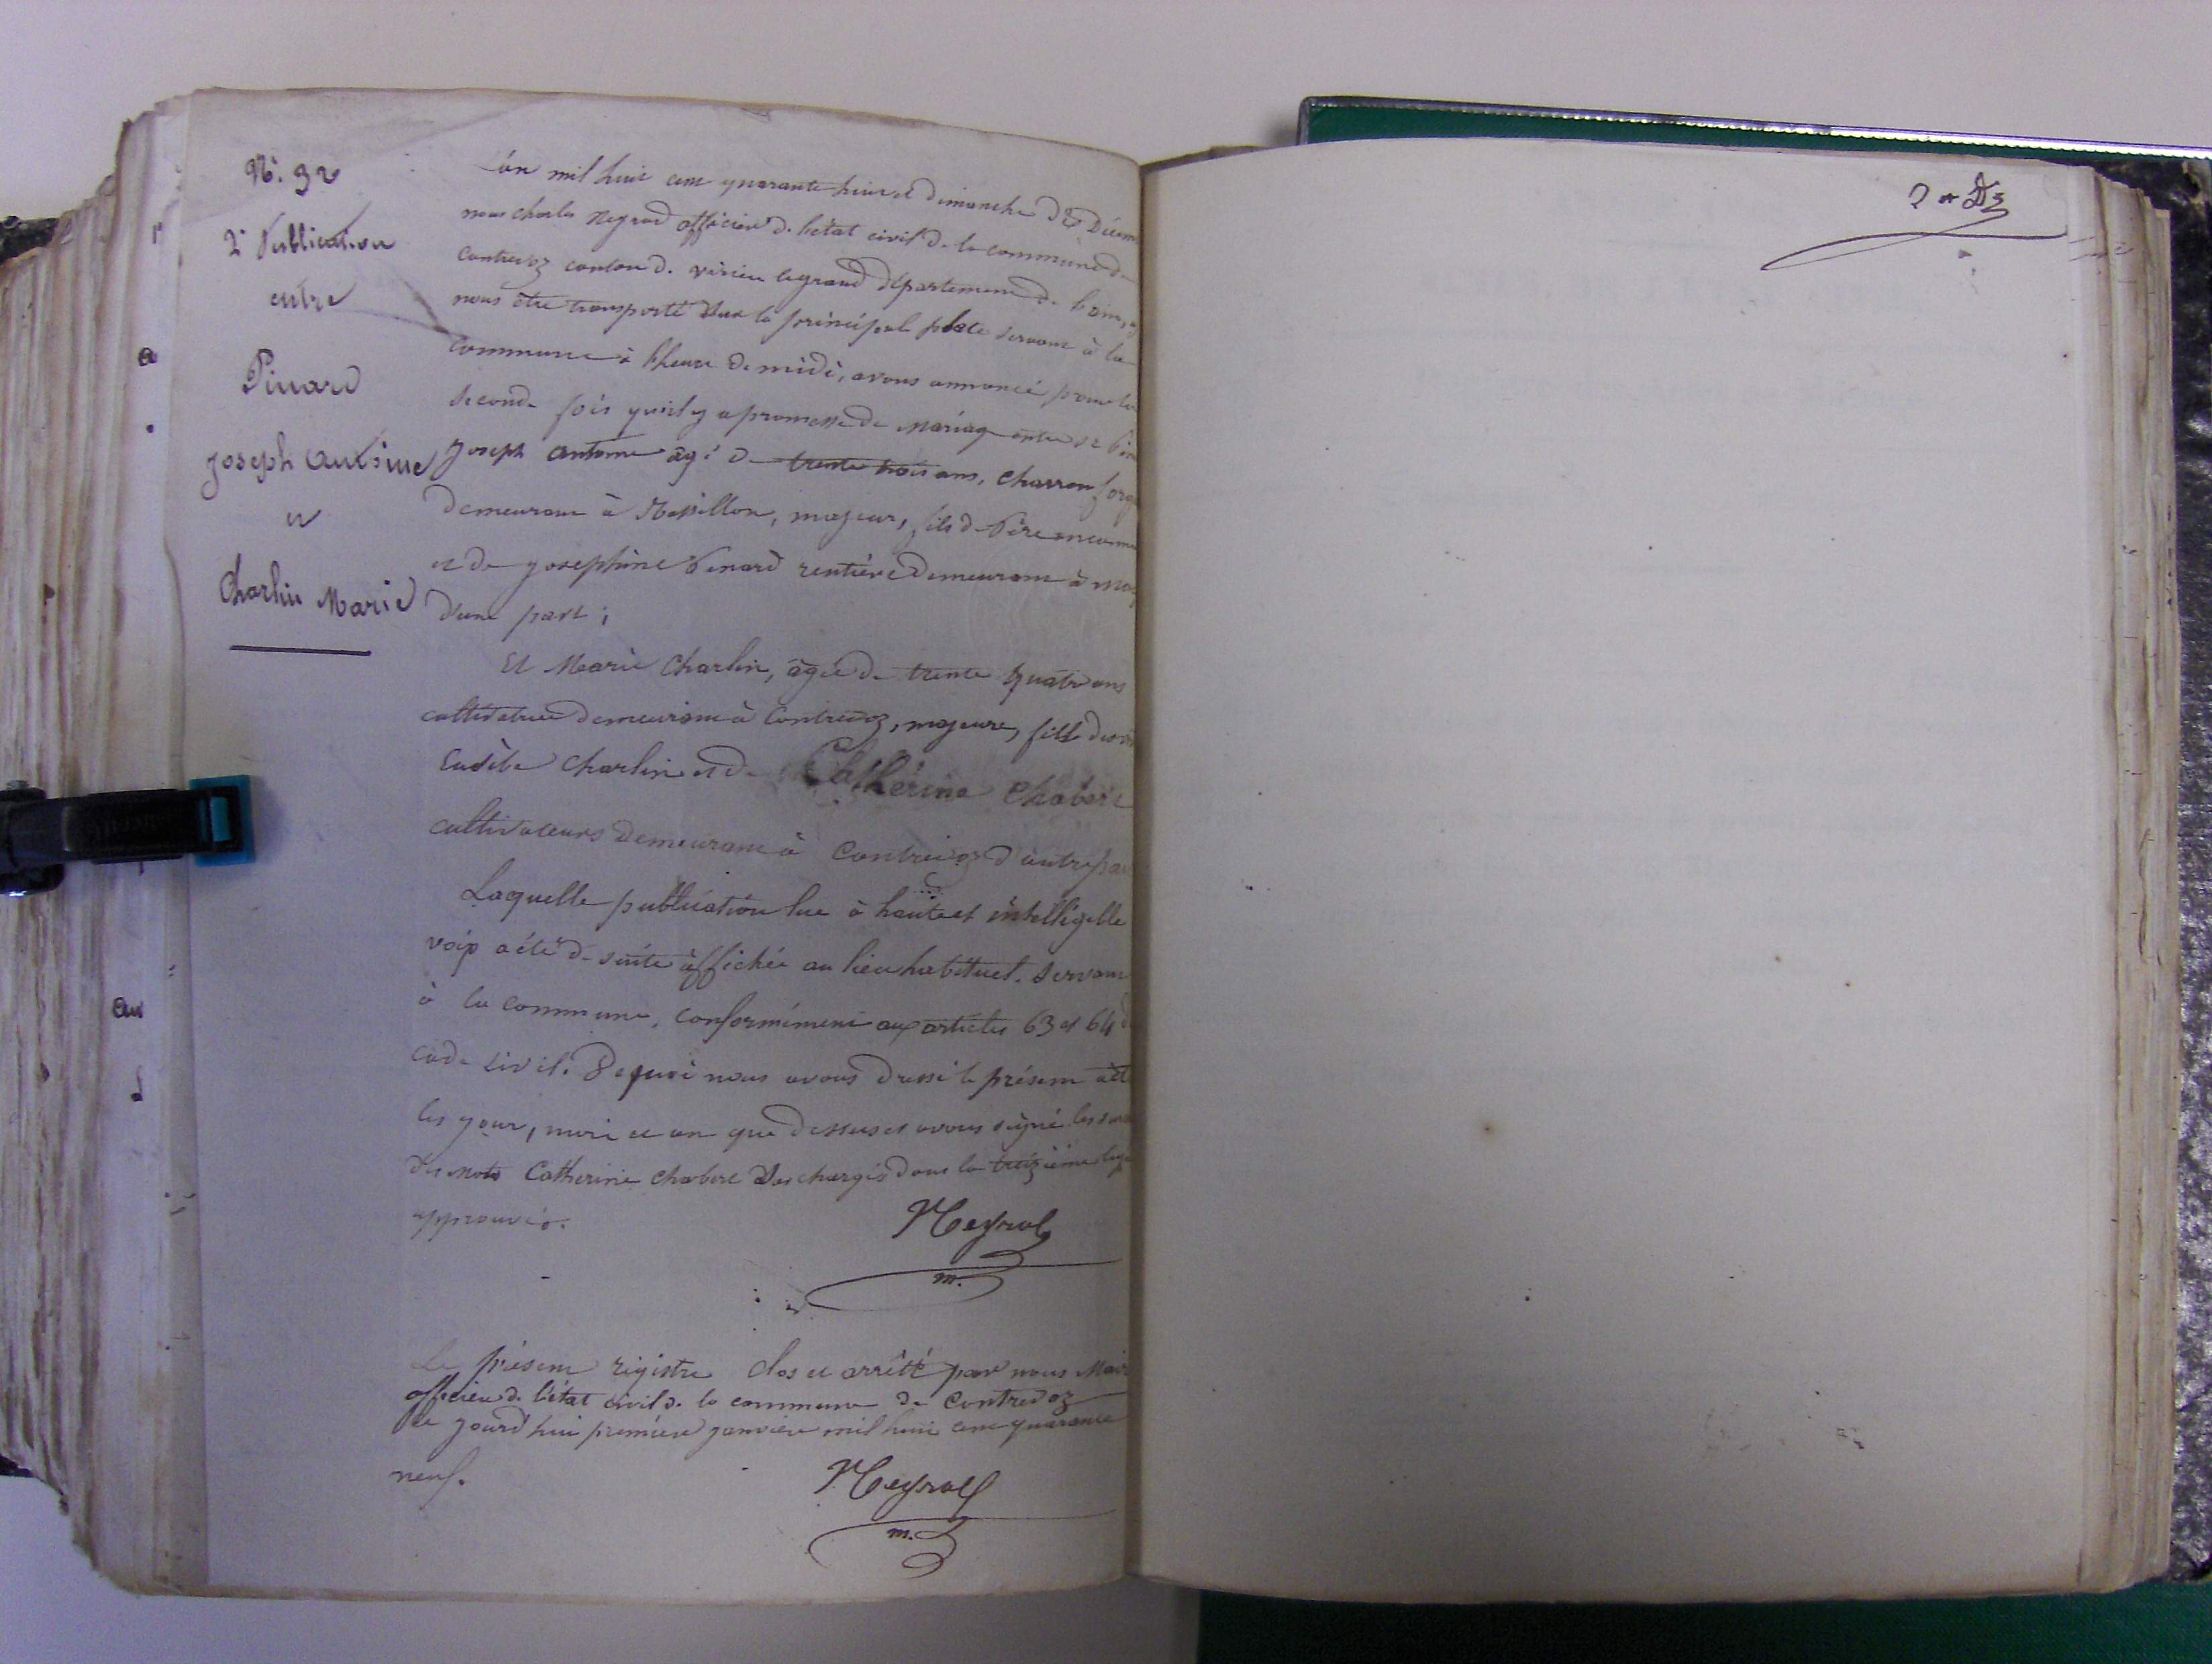 N°. 32
2e Publication
entre
Pinard
Joseph Antoine
et
Charlin Marie
L'an mil huit cent quarante huit et dimanche Décem
nous charles officier de l'état civil de la commune de
Contrevoz canton de virieu legrand département de
nous être transporté sur la principal place servant à la
commune à l'heure de midi, avons annoncé pour la
seconde fois qu'il y a promesse de mariage entre
Joseph antoine âgé de trente trois ans, charron
demeurant à Rossillon, majeur, fils de Père inconnu
et de josephine Pinard rentière demeurant à
d'une part ;
Et Marie Charlin, âgée de trente quatre ans
cultivatrice demeurant à Contrevoz, majeure, fille des
Eusèbe Charlin et de Cathérine Chabert
cultivateurs demeurant à Contrevoz d'autre par
Laquelle publication lue à haute et intelligelle
voix a été de suite affichée au lieu habituel servant
à la commune, conformément aux articles 63 et 64 d
code civil. De quoi nous avons dressé le présent act
les jour, mois et an que dessus et avons signé les
des mots Catherine Chabert surchargés dans la treizième
approuvés.
Meyrad
m.
Le présent régistre clos et arrêté par nous Mair
officier de l'état civil de la commune de Contrevoz
ce jourd'hui premiere janvier mil huit cent quarante
neuf.
Meyrad
m.